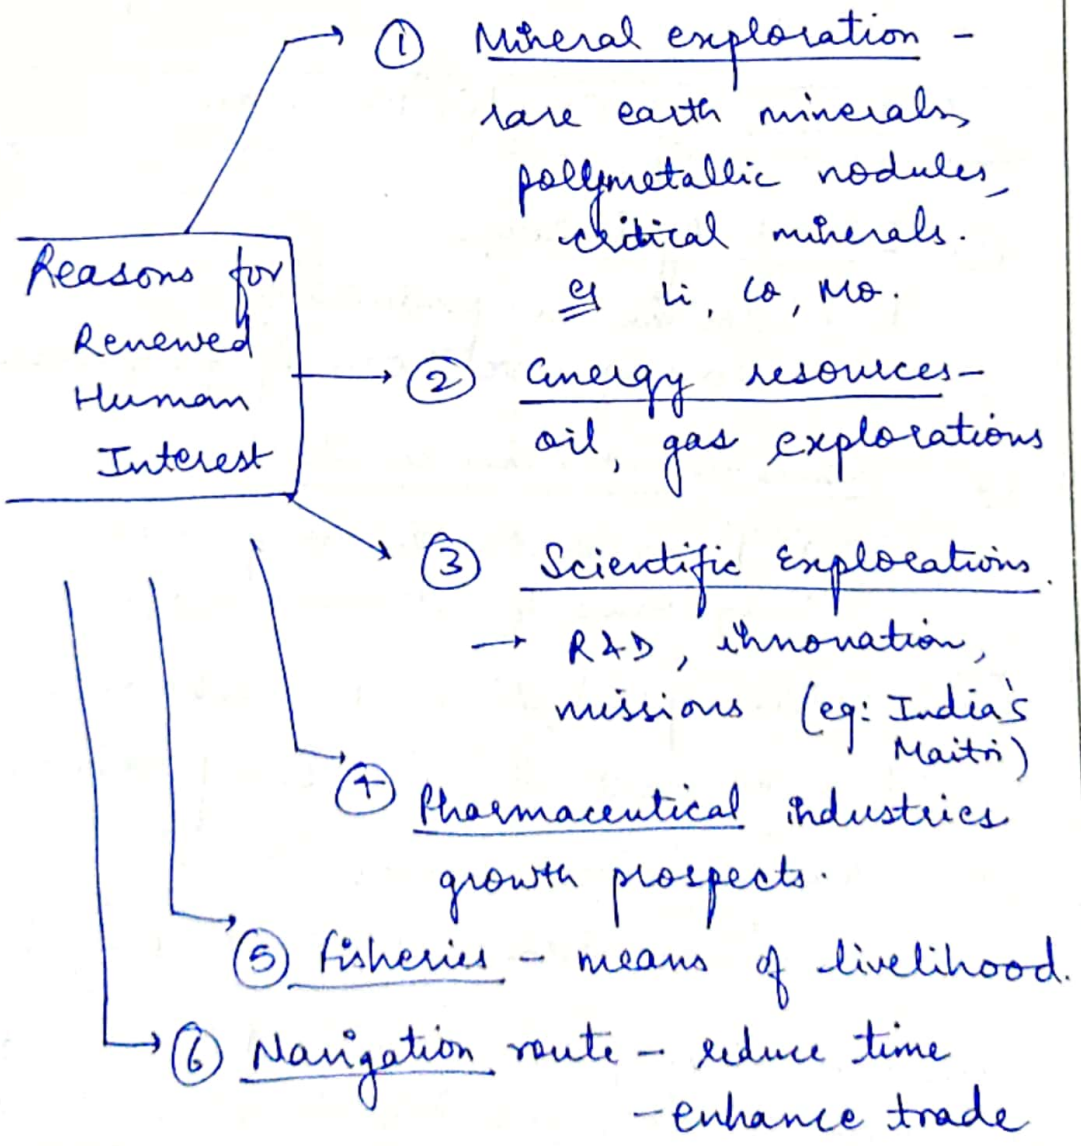 ① Mineral exploration -
rare earth minerals,
polymetallic nodules,
critical minerals.
eg Li, Co, Mo.
Reasons for
Renewed
Human
Interest
② Energy resources -
oil, gas explorations
③ Scientific Explorations.
→ R&D, innovation,
missions (eg: India's
Maitri)
④ Pharmaceutical industries
growth prospects.
⑤ Fisheries - means of livelihood.
⑥ Navigation route - reduce time
- enhance trade